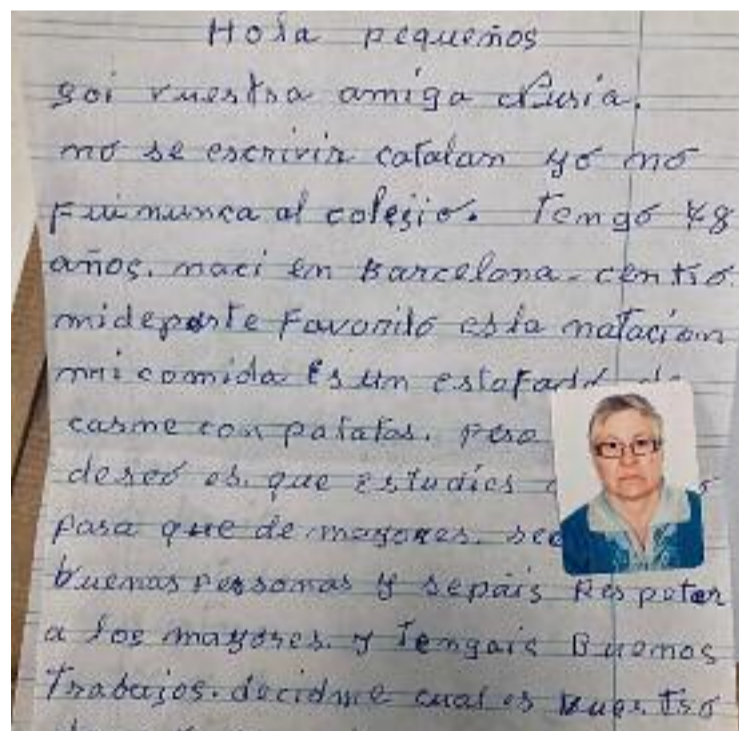 Hola pequeños
soi vuestra amiga Nuria.
no se escrivir catalan yo no
Fui nunca al colegio. Tengo 78
años. naci en Barcelona-centro
mideporte Favorito es la natacion
mi comida Es un estofado de
carne con patatas. pero
deseo es. que estudies
para que de mayores.
buenas personas y sepais Respetar
a los mayores. y Tengais Buenos
Trabajos. decidme cual es vuestro